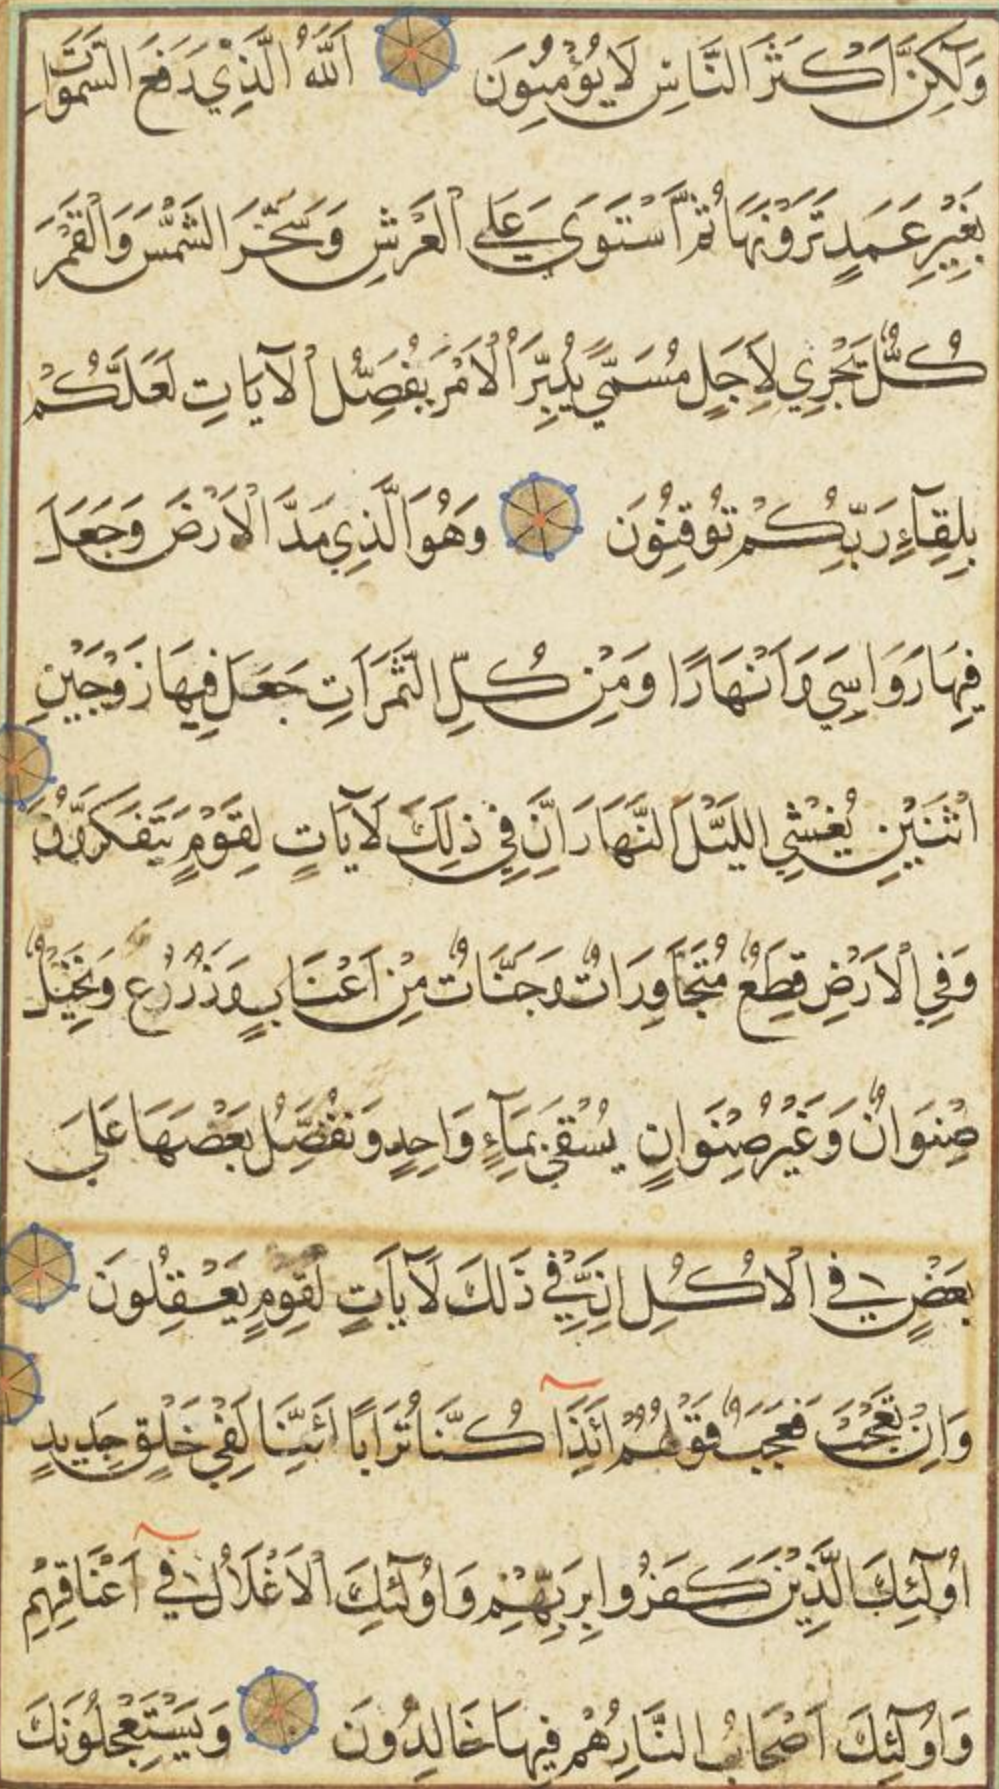 وَلَكِنَّ اَكْثَرَ النَّاسِ لَا يُؤْمِنُونَ اَللّٰهُ الَّذِي رَفَعَ السَّمٰوَاتِ
بِغَيْرِ عَمَدٍ تَرَوْنَهَا ثُمَّ اسْتَوَى عَلَى الْعَرْشِ وَسَخَّرَ الشَّمْسَ وَالْقَمَرَ
كُلٌّ يَجْرِي لِاَجَلٍ مُسَمًّى يُدَبِّرُ الْاَمْرَ يُفَصِّلُ الْآيَاتِ لَعَلَّكُمْ
بِلِقَآءِ رَبِّكُمْ تُوقِنُونَ وَهُوَ الَّذِي مَدَّ الْاَرْضَ وَجَعَلَ
فِيهَا رَوَاسِيَ وَاَنْهَارًا وَمِنْ كُلِّ الثَّمَرَاتِ جَعَلَ فِيهَا زَوْجَيْنِ
اثْنَيْنِ يُغْشِي اللَّيْلَ النَّهَارَ اِنَّ فِي ذٰلِكَ لَآيَاتٍ لِقَوْمٍ يَتَفَكَّرُونَ
وَفِي الْاَرْضِ قِطَعٌ مُتَجَاوِرَاتٌ وَجَنَّاتٌ مِنْ اَعْنَابٍ وَزَرْعٌ وَنَخِيلٌ
صِنْوَانٌ وَغَيْرُ صِنْوَانٍ يُسْقَى بِمَآءٍ وَاحِدٍ وَنُفَضِّلُ بَعْضَهَا عَلَى
بَعْضٍ فِي الْاُكُلِ اِنَّ فِي ذَلِكَ لَآيَاتٍ لِقَوْمٍ يَعْقِلُونَ
وَاِنْ تَعْجَبْ فَعَجَبٌ قَوْلُهُمْ اَئِذَا كُنَّا تُرَابًا اَئِنَّا لَفِي خَلْقٍ جَدِيدٍ
اُولَٓئِكَ الَّذِينَ كَفَرُوا بِرَبِّهِمْ وَاُولَٓئِكَ الْاَغْلَالُ فِي اَعْنَاقِهِمْ
وَاُولَٓئِكَ اَصْحَابُ النَّارِ هُمْ فِيهَا خَالِدُونَ وَيَسْتَعْجِلُونَكَ